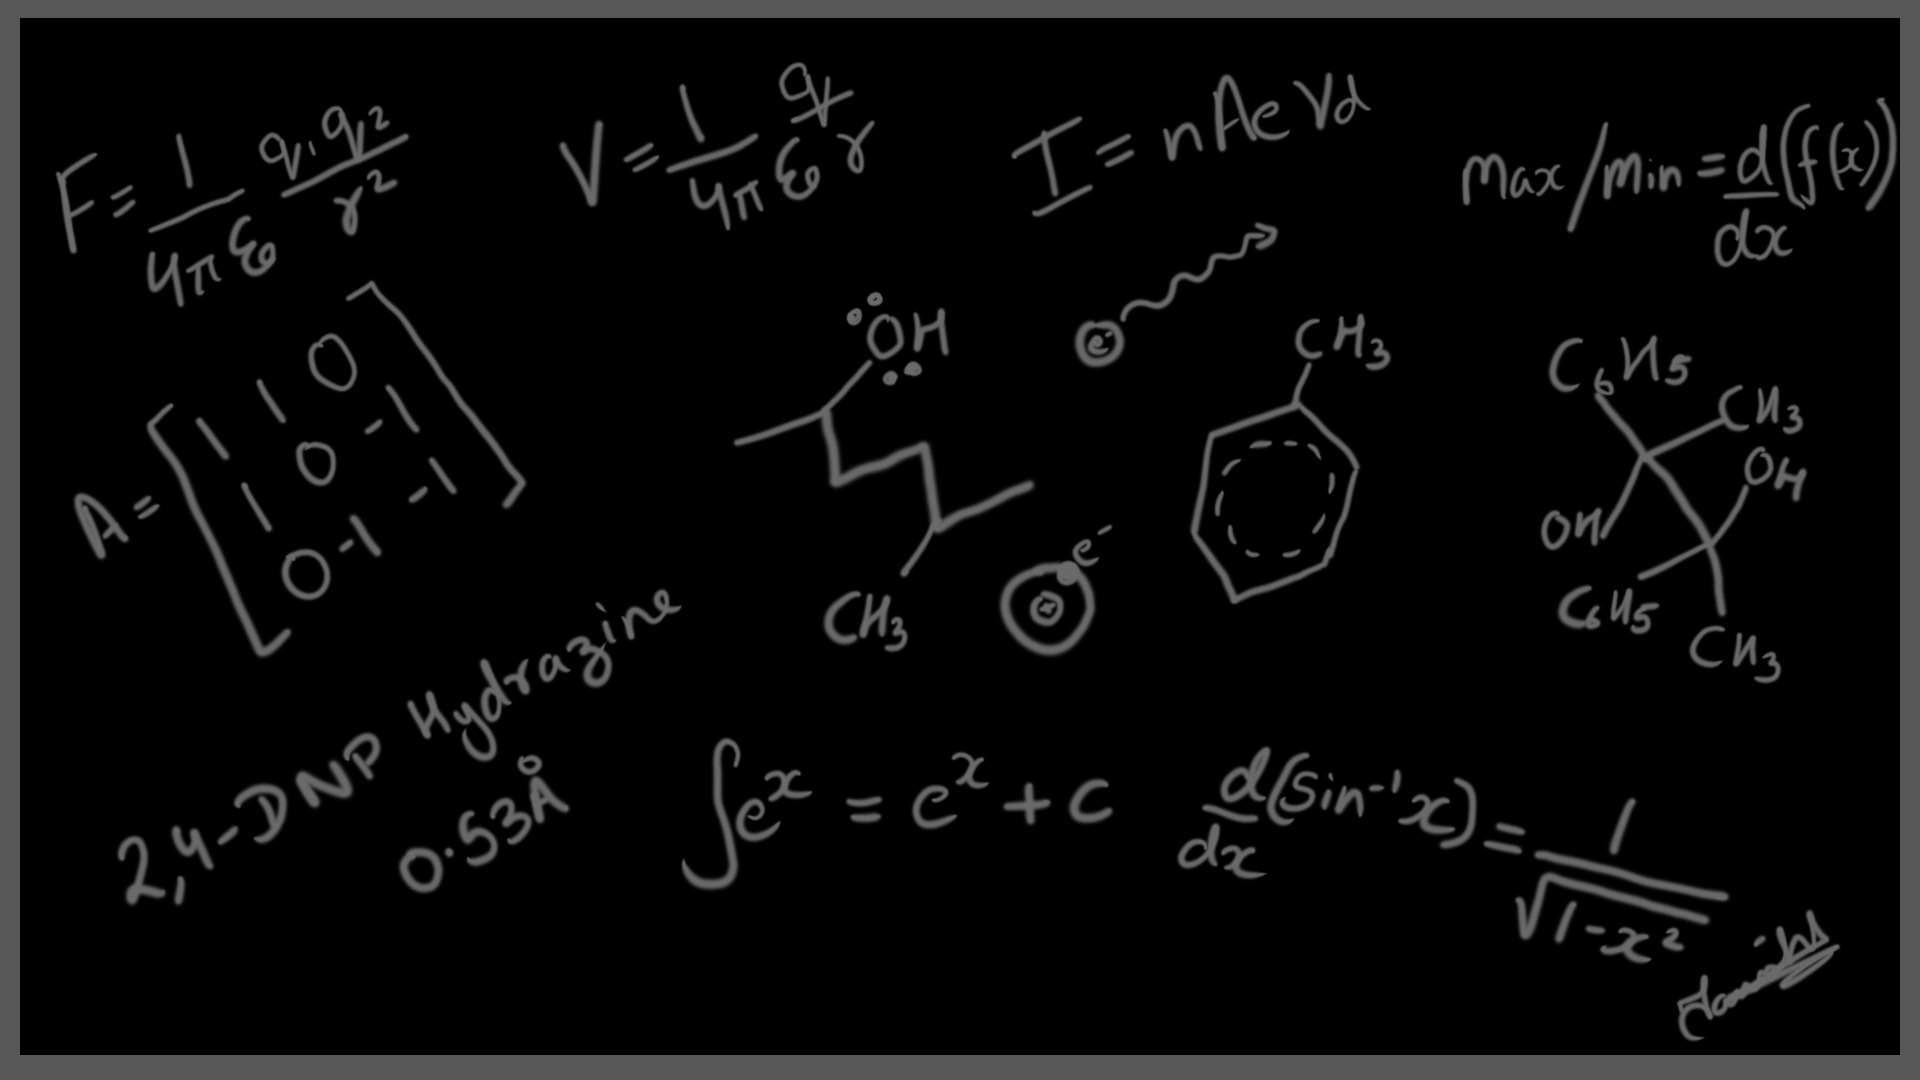 F = 1/4πε₀ q₁q₂/r²
V = 1/4πε₀ q/r
I = nAeVd
max/min = d/dx (f(x))
A = [1 1 0
1 0 -1
0 -1 -1]
OH
CH₃
e⁻
e⁻
CH₃
C₆H₅
CH₃
OH
OH
C₆H₅
CH₃
2,4-DNP Hydrazine
0.53Å
∫eˣ = eˣ + c
d/dx (sin⁻¹x) = 1/√1-x²